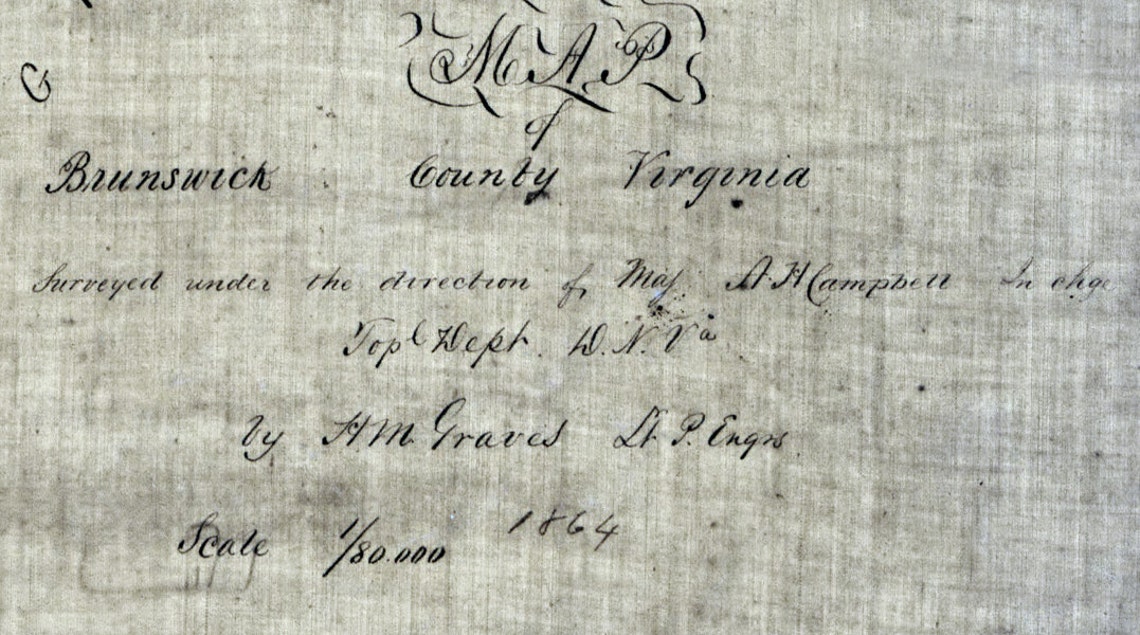 MAP
of
Brunswick County Virginia
Surveyed under the direction of Maj A H Campbell In chge
Topl Dept. D. N. Va
by H M Graves Lt P. Engrs
Scale 1/80.000 1864